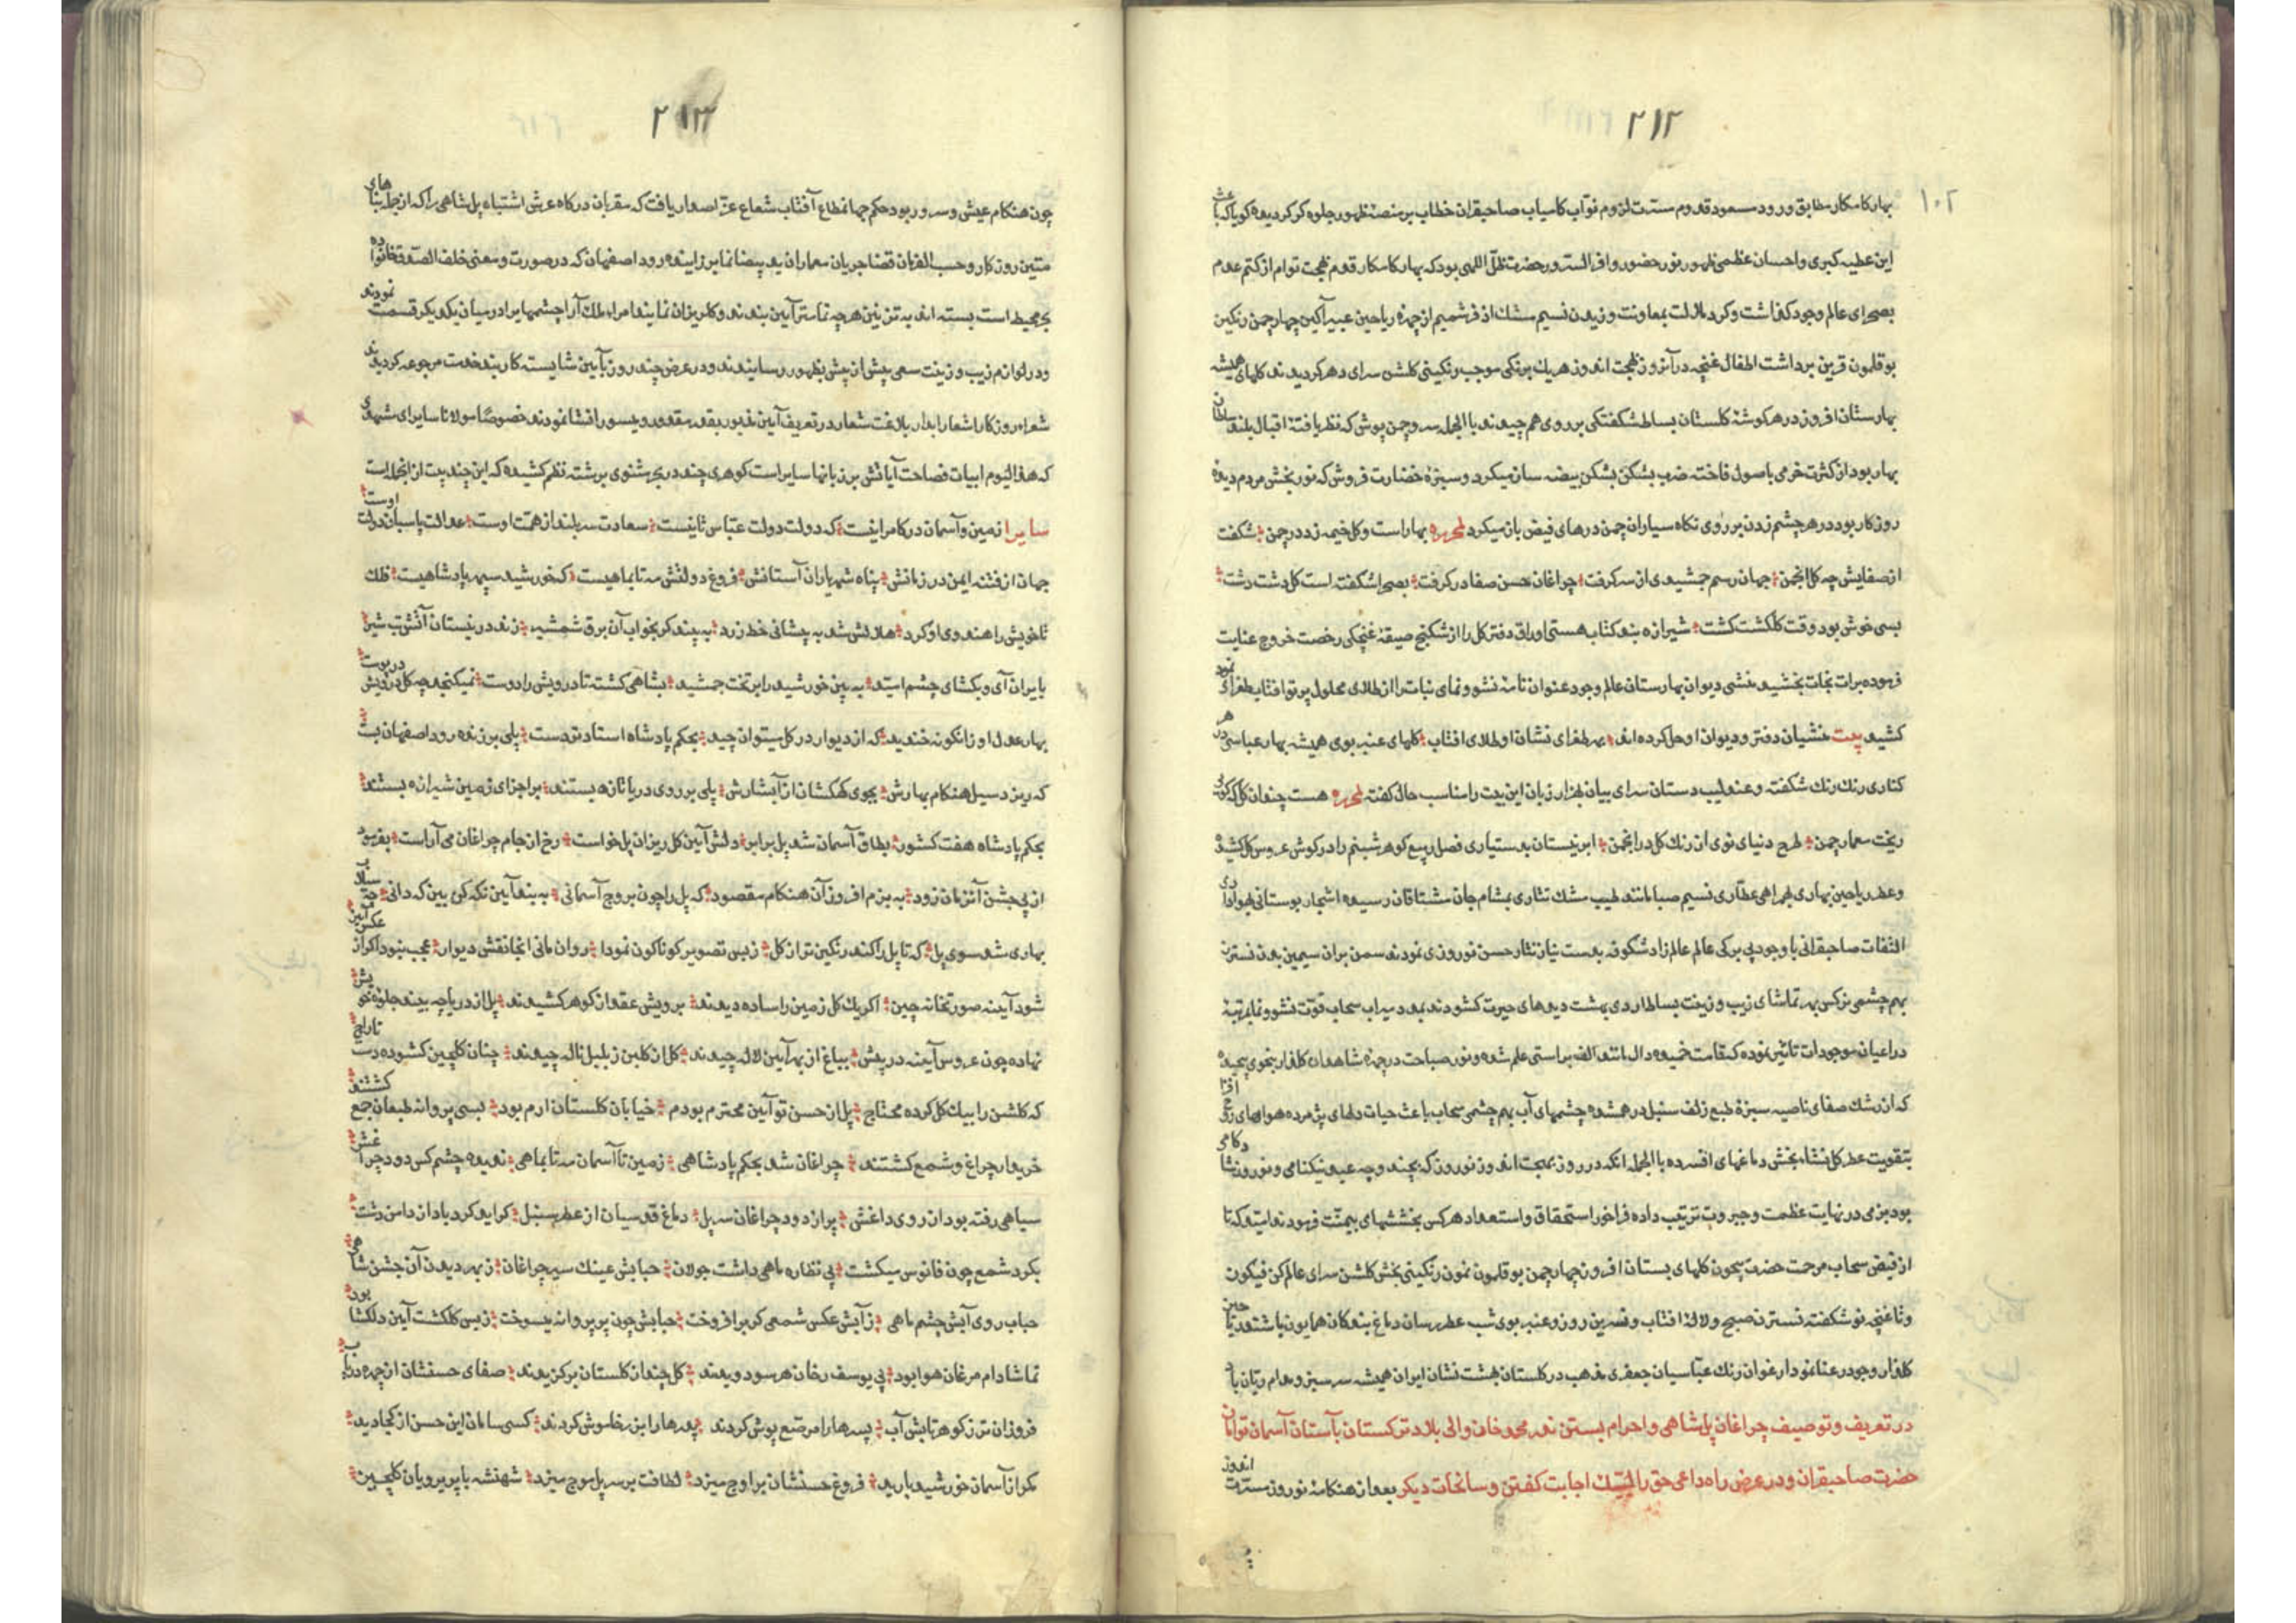 ۲۱۲
۱۰۲
بهار کامکار مطابق ورود مسعود قدوم مسرت لزوم نواب کامیاب صاحبقران خطاب بر منصهٔ ظهور جلوه گر گردیده گویا که باعث
این عطیه کبری و احسان عظمی ظهور نور حضور وافر السرور حضرت ظل اللهی بود که بهار کامکار قدوم بهجت توام از کتم عدم
بصحرای عالم وجود گذاشت و گرد ملالت بمعاونت وزیدن نسیم مشک اذفر شمیم از چهرهٔ ریاحین عبیرآگین چهارچمن رنگین
بوقلمون قرین برداشت اطفال غنچه در آنروز بهجت اندوز هریک برنگی موجب رنگینی گلشن سرای دهر گردیدند گلهای همیشه
بهارستان افروز در هر گوشهٔ گلستان بساط شکفتگی بر روی هم چیدند باالجمله سرو چمن پوش که نظر یافتهٔ اقبال بلند سلطان
بهار بود از کثرت خرمی باصول فاخته ضرب بشکن بشکن بیضه ساز میکرد و سبزهٔ خضارت فروش که نور بخش مردم دیدهٔ
روزکار بود در هر چشم زدن بر روی نگاه سیاران چمن درهای فیض باز میکرد لمحرره بهار است و گل خیمه زد در چمن شکفت
از صفایش چه گل انجمن جهان رسم جمشیدی از سر گرفت چراغان حسن صفا در گرفت بصحرا شکفته است گل دشت دشت
بسی خوش بود وقت گلگشت گشت شیرازه بند کتاب هستی اوراق دفتر گل را از شکنج ضیقهٔ غنچگی رخصت خروج عنایت
فرموده برات نجات بخشید منشی دیوان بهارستان عالم وجود عنوان نامهٔ نشو و نمای نبات را از طلای محلول پرتو افتاب طغرای نمود
کشید بیت منشیان دفتر و دیوان او حل کرده اند بهر طغرای نشان او طلای افتاب گلهای عنبر بوی همیشه بهار عباسی در هر
کناری رنگ رنگ شکفته و عندلیب دستان سرای بیان بهزار زبان این بیت را مناسب حال گفته لمحرره هست چندان گل که گوئی
ریخت معمار چمن طرح دنیای نوی از رنگ گل در انجمن ابر نیستان بدستیاری فصل ربیع گوهر شبنم را در گوش عروس گل کشیده
و عطر ریاحین بهاری بهمراهی عطاری نسیم صبا مانند طیب مشک تتاری بمشام جان مشتاقان رسیده اشجار بوستانی بهواداری
التفات صاحبقرانی با وجود بی برگی عالم عالم زاد شکوفه بدست نیاز نثار حسن نوروزی نمودند سمن بران سیمین بدن نسترن
بهم چشمی نرگس بهر تماشای زیب و زینت بساط اردی بهشت دیدهای حیرت گشودند بمدد میراب سحاب قوت نشو و نما بمرتبهٔ
در اعیان موجودات تاثیر نموده که قامت خمیده دال مانند الف براستی علم شده و نور صباحت در چهرهٔ شاهدان گلعذار بنحوی پیچیده
که از رشک صفای ناصیه سبزهٔ طبع زلف سنبل درهم شده چشمهای آب بهم چشمی سحاب باعث حیات دلهای پژمرده هواهای روح افزا
بتقویت عطر گل نشاه بخش دماغهای افسرده باالجمله آنکه در روز بهجت اندوز نوروز که بچند وجه عید نیکنامی و نوروز شادکامی
بود بزمی در نهایت عظمت و جبروت ترتیب داده فراخور استحقاق و استعداد هر کس بخششهای بیمنت فرمودند امید که تا
از فیض سحاب مرحمت حضرت بیچون گلهای بستان افروز چهارچمن بوقلمون نمون رنگینی بخش گلشن سرای عالم کن فیکون
و تا غنچه نو شکفته نسترن صبح و لالهٔ افتاب و نسرین روز و عنبر بوی شب عطر رسان دماغ بندکان همایون باشند ریاحین
گلزار وجود رعنا نمودار غوان رنگ عباسیان جعفری مذهب در گلستان بهشت نشان ایران همیشه سرسبز و مدام ریان باد
در تعریف و توصیف چراغان پل شاهی و احرام بستن ندر محمد خان والی بلاد ترکستان بآستان آسمان توامان
حضرت صاحبقران و در عرض راه داعی حق را لبیک اجابت گفتن و سانحات دیگر بعد از هنکامهٔ نوروز مسرت اندوز
۲۱۳
چون هنکام عیش و سرور بود حکم جهانمطاع آفتاب شعاع عز اصدار یافت که مقربان درکاه عرش اشتباه پل شاهی را که از جمله بناهای
متین روزکار و حسب الفرمان قضا جریان معماران ید بیضا نما بر زاینده رود اصفهان که در صورت و معنی خلف الصدق خانوادهٔ
بحر محیط است بسته اند به تزیین هر چه تمامتر آیین بندند و گلریزان نمایند امراء ملک آرا چشمها را در میان یکدیگر قسمت نمودند
و در لوازم زیب و زینت سعی بیش از پیش بظهور رسانیدند و در عرض چند روز بآیین شایسته کاربند خدمت مرجوعه گردیدند
شعراء روزکار اشعار آبدار بلاغت شعار در تعریف آیین مذبور بقدر مقدور و میسور انشا نمودند خصوصا مولانا سایرای مشهدی
که هذا الیوم ابیات فصاحت آیاتش بر زبانها سایر است گوهری چند در بحر مثنوی برشته نظم کشیده که این چند بیت از انجمله است
سایرا زمین و آسمان در کامرانیست که دولت دولت عباس ثانیست سعادت سربلند از همت اوست عدالت پاسبان دولت اوست
جهان از فتنه ایمن در زمانش پناه شهریاران آستانش فروغ دولتش مه تا بماهیست که خورشید سپهر پادشاهیست فلک
تا خویش را هندوی او کرد هلالش شد به پیشانی خط زرد به بیند گر بخواب آن برق شمشیر زند در نیستان آتش تب شیر
بایران آی و بگشای چشم امید به بین خورشید را بر تخت جمشید بشاهی گشته تا درویش را دوست نمیگنجد چه گل درویش در پوست
بهار عدل او زانگونه خندید که از دیوار در گل میتوان چید بحکم پادشاه استاد تردست پلی بر زنده رود اصفهان بست
که ریزد سیل هنکام بهارش بجوی کهکشان از آبشارش پلی بر روی دریا تازه بستند بر اجزای زمین شیرازه بستند
بحکم پادشاه هفت کشور بطاق آسمان شد پل برابر دلش آیین گل ریزان پل خواست رخ از جام چراغان می آراست بفرمود
از پی جشن آنزمان زود به بزم افروز آن هنکام مقصود که پل را چون بروج آسمانی به بند آیین نکه کن بین که دانی
بهاری شد سوی پل که تا پل را کند رنگین تر از گل ز بس تصویر کوناکون نمودار روان مانی انجا نقش دیوار عجب نبود اگر از عکس آیین
شود آیینه صورتخانهٔ چین اگر یک گل زمین را ساده دیدند برویش عقد از گوهر کشیدند پل از دریاچه بیند جلوهٔ خویش
نهاده چون عروس آیینه در پیش بباغ از بهر آیین لاله چیدند گل از گلبن ز بلبل ناله چیدند چنان گلچین گشوده دست تاراج
که گلشن را بیک گل کرده محتاج پل از حسن تو آیین محترم بود خیابان گلستان ارم بود بسی پروانه طبعان جمع گشتند
خریدار چراغ و شمع گشتند چراغان شد بحکم پادشاهی زمین تا آسمان مه تا بماهی ندیده چشم کس دود چراغش
سیاهی رفته بود از روی داغش پر از دود چراغان سر پل دماغ قدسیان از عطر سنبل گر آید گرد باد از دامن دشت
بگرد شمع چون فانوس میگشت پی نظاره ماهی داشت جولان حبابش عینک سیر چراغان ز بهر دیدن آن جشن شاهی
حباب روی آبش چشم ماهی ز آبش عکس شمعی گر برافروخت حبابش چون پر پروانه میسوخت ز بس گلگشت آیین دلگشا بود
تماشا دام مرغان هوا بود پی یوسف رخان هر سو دویدند گل چندان گلستان برگزیدند صفای حسنشان از چهره در تاب
فروزان تر ز گوهر تابش آب پسرها را مرصع پوش کردند پدرها را بزر خاموش کردند کسی سامان این حسن از کجا دید
مگر از آسمان خورشید بارید فروغ حسنشان بر اوج میزد لطافت بر سر پل موج میزد شهنشه با پریرویان گلچین